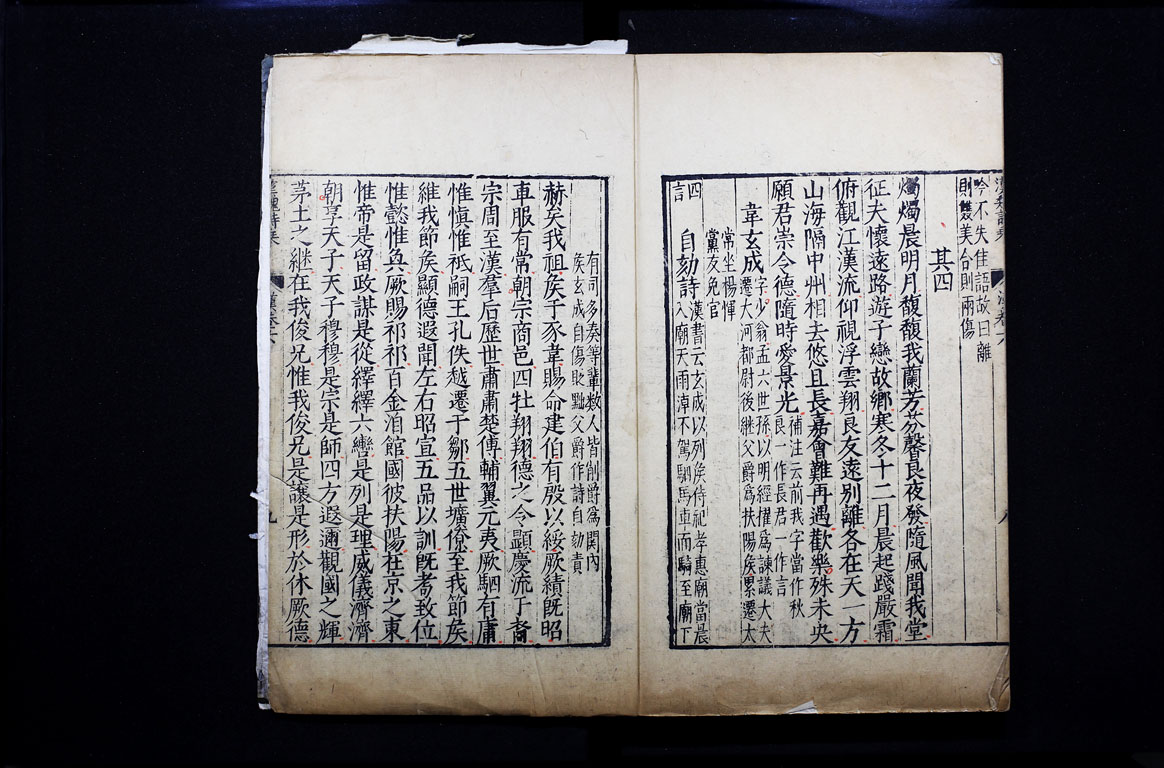 吟不失佳語故曰離
則雙美合則兩傷
其四
燭燭晨明月馥馥我蘭芳芬馨良夜發隨風聞我堂
征夫懷遠路遊子戀故鄉寒冬十二月晨起踐嚴霜
俯觀江漢流仰視浮雲翔良友遠別離各在天一方
山海隔中州相去悠且長嘉會難再遇歡樂殊未央
願君崇令德隨時愛景光
補注云前我字當作秋
良一作長君一作言
韋玄成
字少翁孟六世孫以明經擢為諫議大夫
遷大河都尉後繼父爵為扶陽矦累遷太
常坐楊惲
黨友免官
四言
自劾詩
漢書云玄成以列矦侍祀孝惠廟當晨
入廟天雨淖不駕駟馬車而騎至廟下
有司多奏等輩數人皆削爵為関內
矦玄成自傷貶黜父爵作詩自劾責
赫矣我祖矦于豕韋賜命建伯有殷以綏厥績既昭
車服有常朝宗商邑四牡翔翔德之令顯慶流于裔
宗周至漢羣后歷世肅肅楚傅輔翼元夷厥駟有庸
惟愼惟祗嗣王孔佚越遷于鄒五世壙僚至我節矦
維我節矦顯德遐聞左右昭宣五品以訓既耇致位
惟懿惟奐厥賜祁祁百金洎館國彼扶陽在京之東
惟帝是留政謀是從繹繹六轡是列是理威儀濟濟
朝享天子天子穆穆是宗是師四方遐邇觀國之輝
茅土之繼在我俊兄惟我俊兄是讓是形於休厥德
九